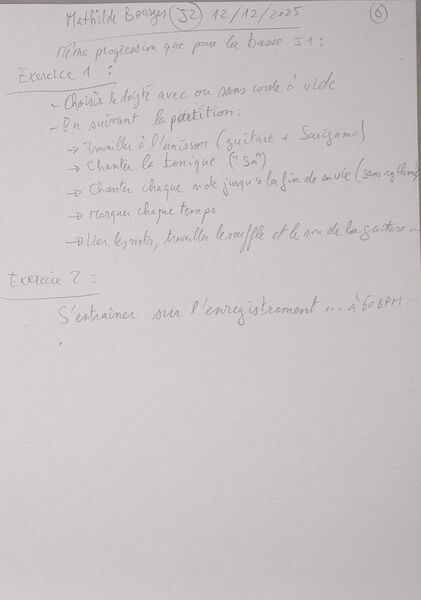 Mathilde Bourges J2 12/12/2025 6
Même progression que pour la basse J1 :
Exercice 1 :
- Choisir le doigté avec ou sans corde à vide
- En suivant la partition :
→ Travailler à l'unisson (guitare + Sargama)
→ Chanter la tonique ("Sa")
→ Chanter chaque note jusqu'à la fin de sa vie (sans rythme)
→ Marquer chaque temps
→ Lier les notes, travailler le souffle et le son de la guitare ...
Exercice 2 :
S'entraîner sur l'enregistrement ... à 60 BPM